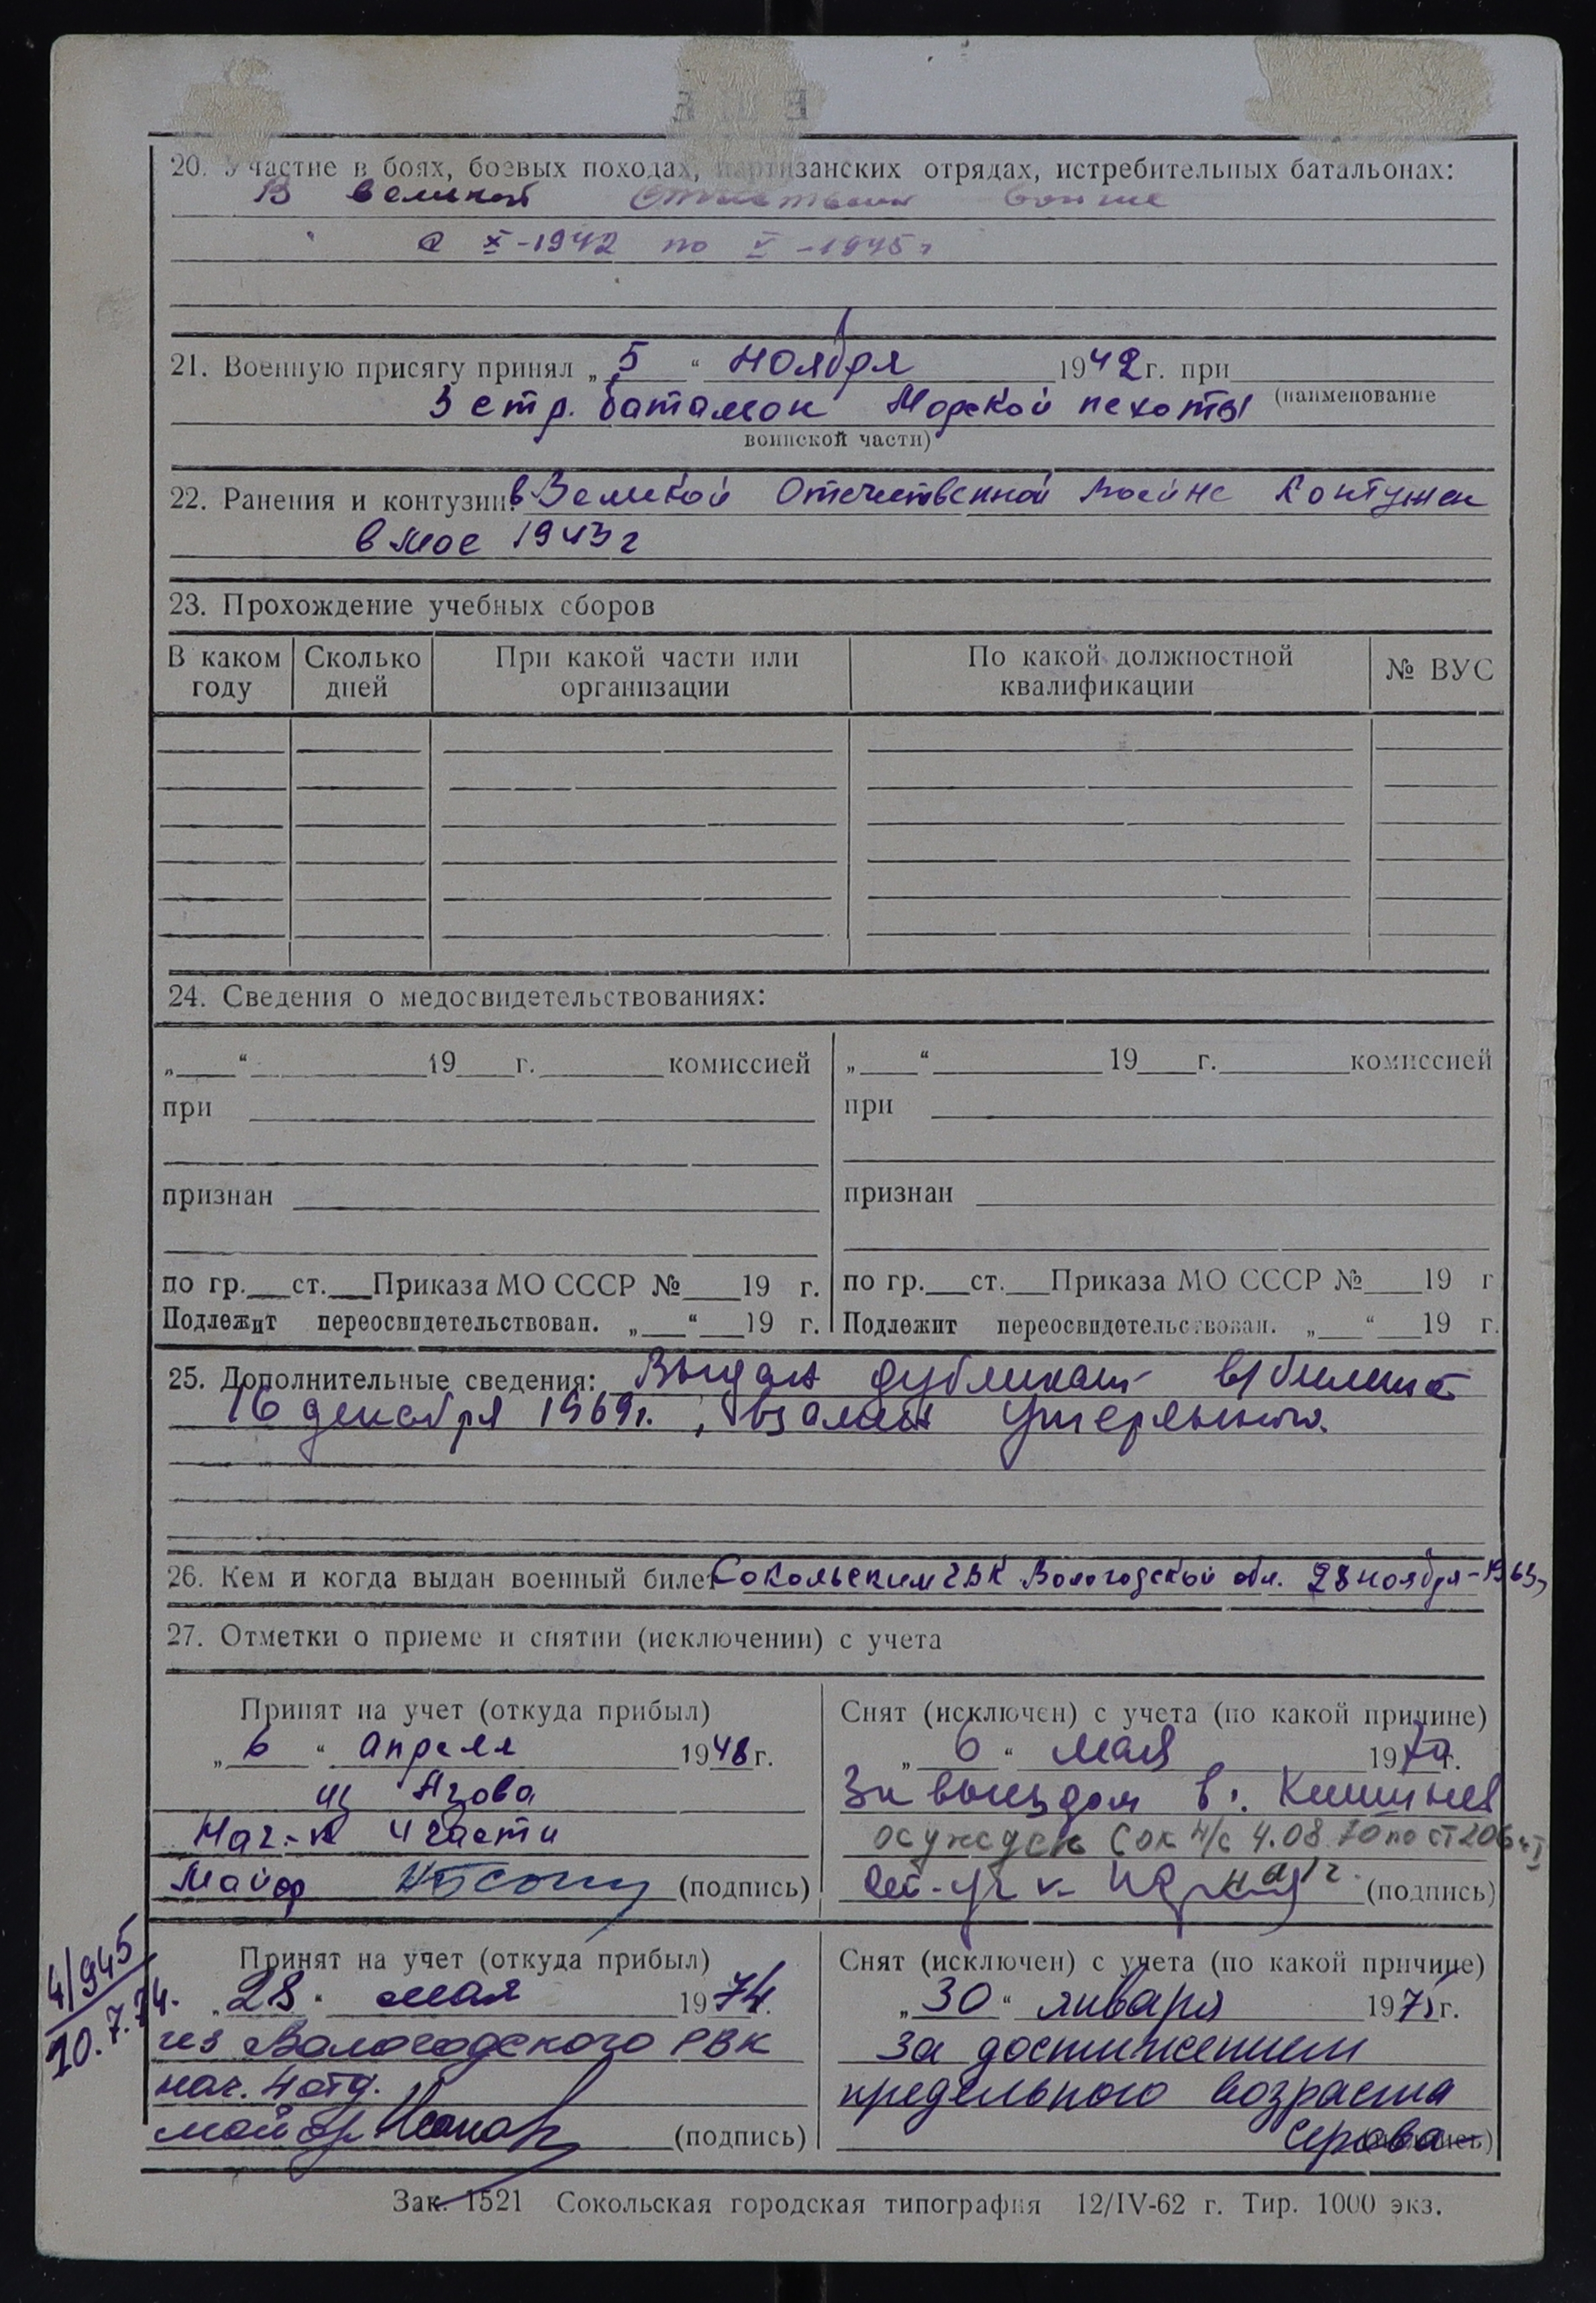 20. Участие в боях, боевых походах, партизанских отрядах, истребительных батальонах:
В великой Отечествен войне
с X-1942 по V-1945 г
21. Военную присягу принял „5“ ноября 1942 г. при
3 стр. батальон Морской пехоты (наименование
воинской части)
22. Ранения и контузии: в Великой Отечественной войне контужен
в мае 1943 г
23. Прохождение учебных сборов
В каком году
Сколько дней
При какой части или организации
По какой должностной квалификации
№ ВУС
24. Сведения о медосвидетельствованиях:
„ “ 19 г. комиссией
при
признан
по гр. ст. Приказа МО СССР № 19 г.
Подлежит переосвидетельствован. „ “ 19 г.
„ “ 19 г. комиссией
при
признан
по гр. ст. Приказа МО СССР № 19 г
Подлежит переосвидетельствован. „ “ 19 г.
25. Дополнительные сведения: Выдан дубликат в/билета
16 декабря 1969 г., взамен утерянного.
26. Кем и когда выдан военный билет Сокольским ГВК Вологодской обл. 28 ноября-1963г
27. Отметки о приеме и снятии (исключении) с учета
Принят на учет (откуда прибыл)
„6“ апреля 1948 г.
из Азова
Нач-к 4 части
Майор (подпись)
Снят (исключен) с учета (по какой причине)
„6“ мая 1970 г.
За выездом в г. Кишинев
осужден Сок н/с 4.08.70 по ст 206 ч I
(подпись)
4/945
20.7.74.
Принят на учет (откуда прибыл)
„28“ мая 1974.
из Вологодского РВК
нач. 4 отд.
майор (подпись)
Снят (исключен) с учета (по какой причине)
„30“ января 1975 г.
за достижением
предельного возраста
Серова (подпись)
Зак. 1521 Сокольская городская типография 12/IV-62 г. Тир. 1000 экз.